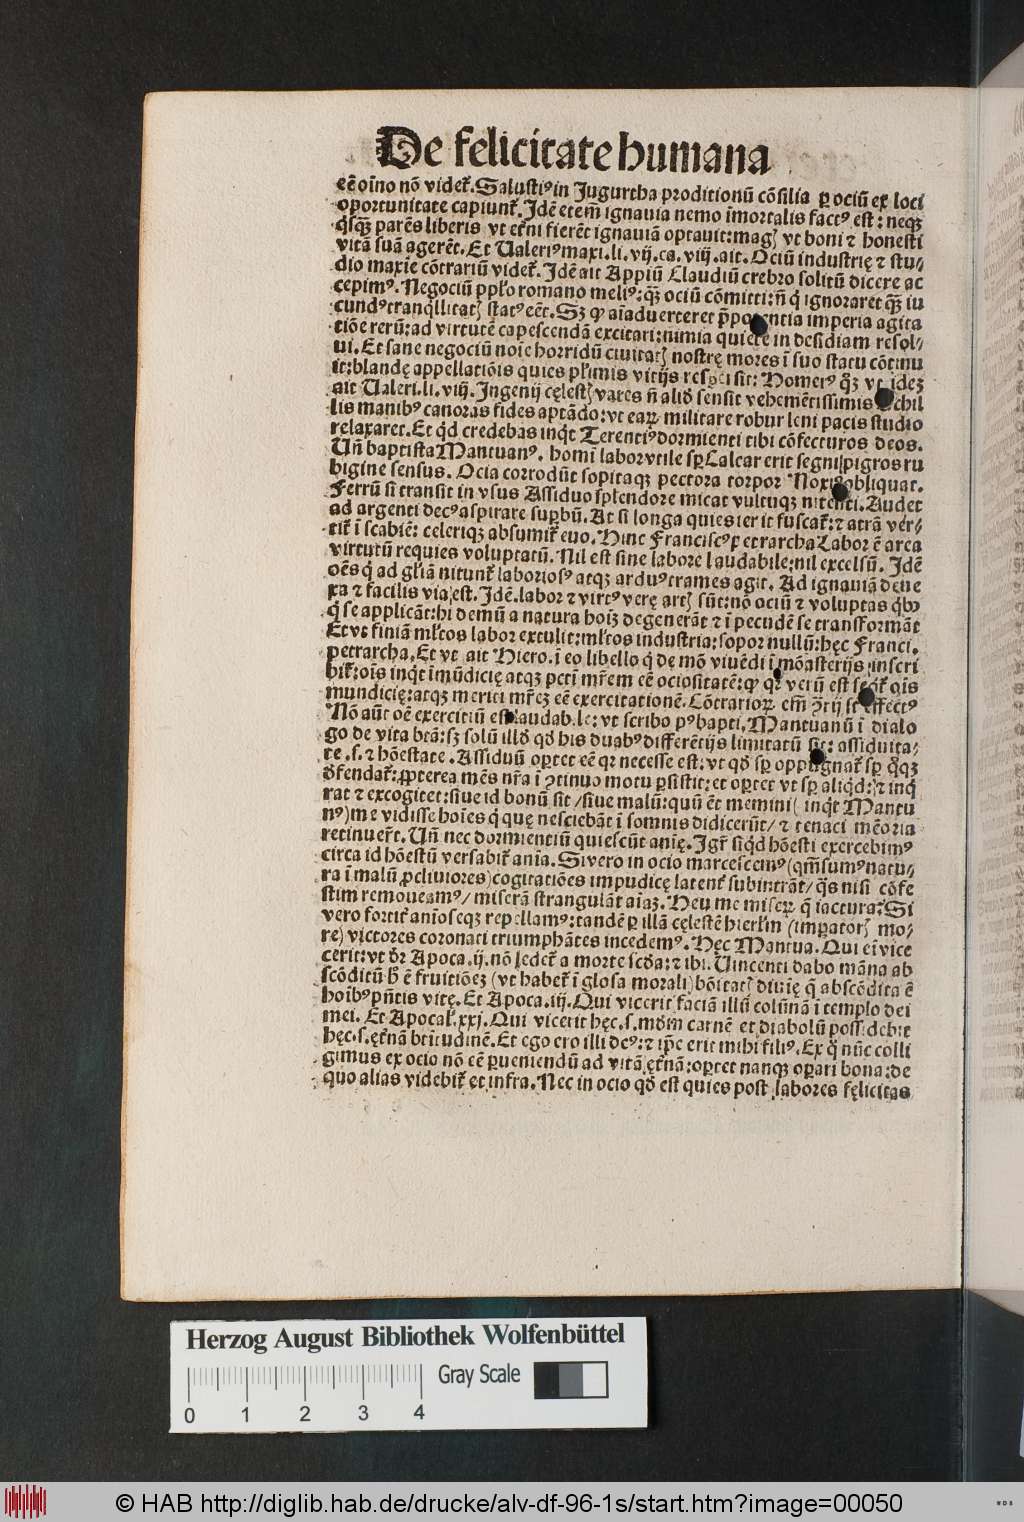 De felicitate humana
eē oīno nō videt̄. Salusti⁹ in Jugurtha proditionū cōsilia ꝑ ociū ex loci
oportunitate capiunt̄. Jdē etem̄ ignauia nemo īmortalis fact⁹ est: neqꝫ
q̄sqꝫ parēs liberis vt etn̄i fierēt ignauiā optauit: magꝭ vt boni ⁊ honesti
vitā suā agerēt. Et Ualeri⁹ maxi. li. vij. ca. viij. ait. Ociū industrię ⁊ stu⸗
dio maxīe cōtrariū videt̄. Jdē ait Appiū Claudiū crebro solitū dicere ac
cepim⁹. Negociū pp̄lo romano meli⁹: qꝫ ociū cōmitti: n̄ q̄ ignoraret qꝫ iu
cund⁹ tranq̄llitatꝭ stat⁹ eēt. Sꝫ ꝙ aīaduerteret p̄potentia imperia agita
tiōe rerū: ad virtutē capescendā excitari: nimia quiete in desidiam resol⸗
ui. Et sane negociū noīe horridū ciuitatꝭ nostrę mores ī suo statu cōtinu
it: blandę appellatiōis quies pl̄imis vitijs respersit: Homer⁹ qꝫ vt idez
ait Ualeri. li. viij. Jngenij cęlestꝭ vates n̄ aliđ sensit vehemētissimis Achil
lis manib⁹ canoras fides aptādo: vt eaꝝ militare robur leni pacis studio
relaxaret. Et qđ credebas inqt̄ Terenti⁹ dormienti tibi cōfecturos deos.
Un̄ baptista Mantuan⁹. homī labor vtile sꝑ Calcar erit segni pigros ru
bigine sensus. Ocia corrodūt sopitaqꝫ pectora torpor Noxi⁹ obliquat.
Ferrū si transit in vsus Assiduo splendore micat vultuqꝫ nitenti. Audet
ad argenti dec⁹ aspirare suꝑbū. At si longa quies ierit fuscat̄: ⁊ atrā ver⸗
tit̄ ī scabiē: celeriqꝫ absumit̄ euo. Hinc Francisc⁹ petrarcha Labor ē area
virtutū requies voluptatū. Nil est sine labore laudabile: nil excelsū. Jdē
oēs q̄ ad gl̄iā nitunt̄ laborios⁹ atqꝫ ardu⁹ trames agit. Ad ignauiā deue
xa ⁊ facilis via est. Jdē. labor ⁊ virt⁹ verę artꝭ sūt: nō ociū ⁊ voluptas q̄bꝰ
q̄ se applicāt: hi demū a natura hoīꝫ degenerāt ⁊ ī pecudē se transformāt
Et vt finiā ml̄tos labor extulit: ml̄tos industria: sopor nullū: hęc Franci.
petrarcha. Et vt ait Hiero. ī eo libello q̄ de mō viuēdi ī mōasterijs inscri
bit̄: oīs inqt̄ īmūdicię atqꝫ pcti mr̄em eē ociositatē: ꝙ qꝛ verū est seq̄t̄ oīs
mundicię: atqꝫ meriti mr̄eꝫ eē exercitationē. Cōtrarioꝝ em̄ ꝯtrij st̄ effect⁹
Nō aūt oē exercitiū est laudabile: vt scribo p⁹ bapti. Mantuanū ī dialo
go de vita btā: sꝫ solū illđ qđ his duab⁹ differētijs limitatū sit: assiduita⸗
te .s. ⁊ hōestate. Assiduū oꝑtet eē qꝛ necesse est: vt qđ sꝑ oppugnat̄ sꝑ qꝫ
đfendat̄: ꝓpterea mēs nr̄a ī ꝯtinuo motu ꝑsistit: et oꝑtet vt sꝑ aliqđ ⁊ inq̄
rat ⁊ excogitet: siue id bonū sit / siue malū: quū ēt memini ( inqt̄ Mantu
n⁹ ) me vidisse hoīes q̄ quę nesciebāt ī somnis didicerūt / ⁊ tenaci mēoria
retinuer̄t. Un̄ nec dormientiū quiescūt anīę. Jgr̄ siqđ hōesti exercebim⁹
circa id hōestū versabit̄ anīa. Si vero in ocio marcescem⁹ (qm̄ sum⁹ natu⸗
ra ī malū ꝓcliuiores) cogitatiōes impudicę latent̄ subintrāt / q̄s nisi cōfe
stim remoueam⁹ / miserā strangulāt aīaꝫ. Heu me miseꝝ q̄ iactura? Si
vero fortit̄ aīoseqꝫ repellam⁹: tandē ꝑ illā cęlestē hierl̄m (imꝑatoꝝ mo⸗
re) victores coronati triumphātes incedem⁹. Hęc Mantua. Qui eī vice
cerit: vt đr Apoca. ij. nō ledet̄ a morte scđa: ⁊ ibi. Uincenti dabo māna ab
scōditū ƀ ē fruitiōeꝫ (vt habet̄ ī glosa morali) bōitatꝭ diuię q̄ abscōdita ē
hoīb⁹ pn̄tis vitę. Et Apoca. iij. Qui vicerit faciā illū colūnā ī templo dei
mei. Et Apocal̄. xxj. Qui vicerit hęc .s. mđm carnē et diabolū possidebit
hęc .s. ęt̄nā btītudinē. Et ego ero illi de⁹: ⁊ ip̄e erit mihi fili⁹. Ex q̄ nūc colli
gimus ex ocio nō eē ꝑueniendū ad vitā ęt̄nā: oꝑtet nanqꝫ oꝑari bona: de
quo alias videbit̄ et infra. Nec in ocio qđ est quies post labores fęlicitas
Herzog August Bibliothek Wolfenbüttel
Gray Scale
0 1 2 3 4
© HAB http://diglib.hab.de/drucke/alv-df-96-1s/start.htm?image=00050